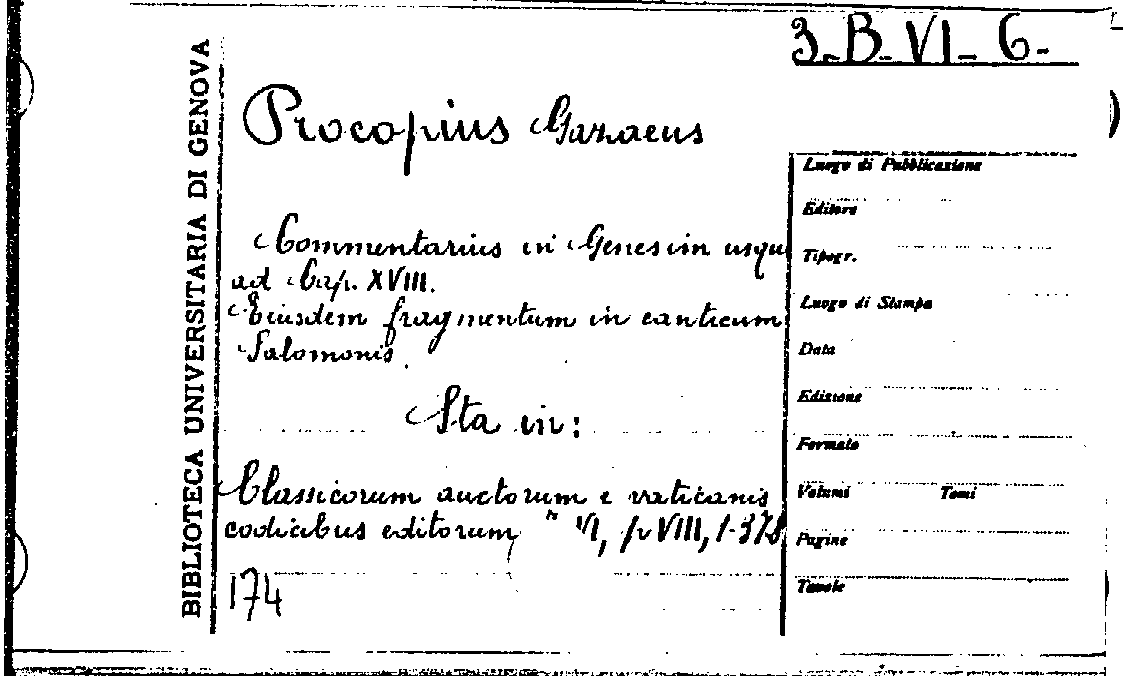 3.B.VI-6-
BIBLIOTECA UNIVERSITARIA DI GENOVA
Procopius Gazaeus
Commentarius in Genesim usque
ad Cap. XVIII.
Eiusdem fragmentum in canticum
Salomonis.
Sta in:
Classicorum auctorum e vaticanis
codicibus editorum VI, p VIII, 1-378
174
Luogo di Pubblicazione
Editore
Tipogr.
Luogo di Stampa
Data
Edizione
Formato
Volumi Tomi
Pagine
Tavole